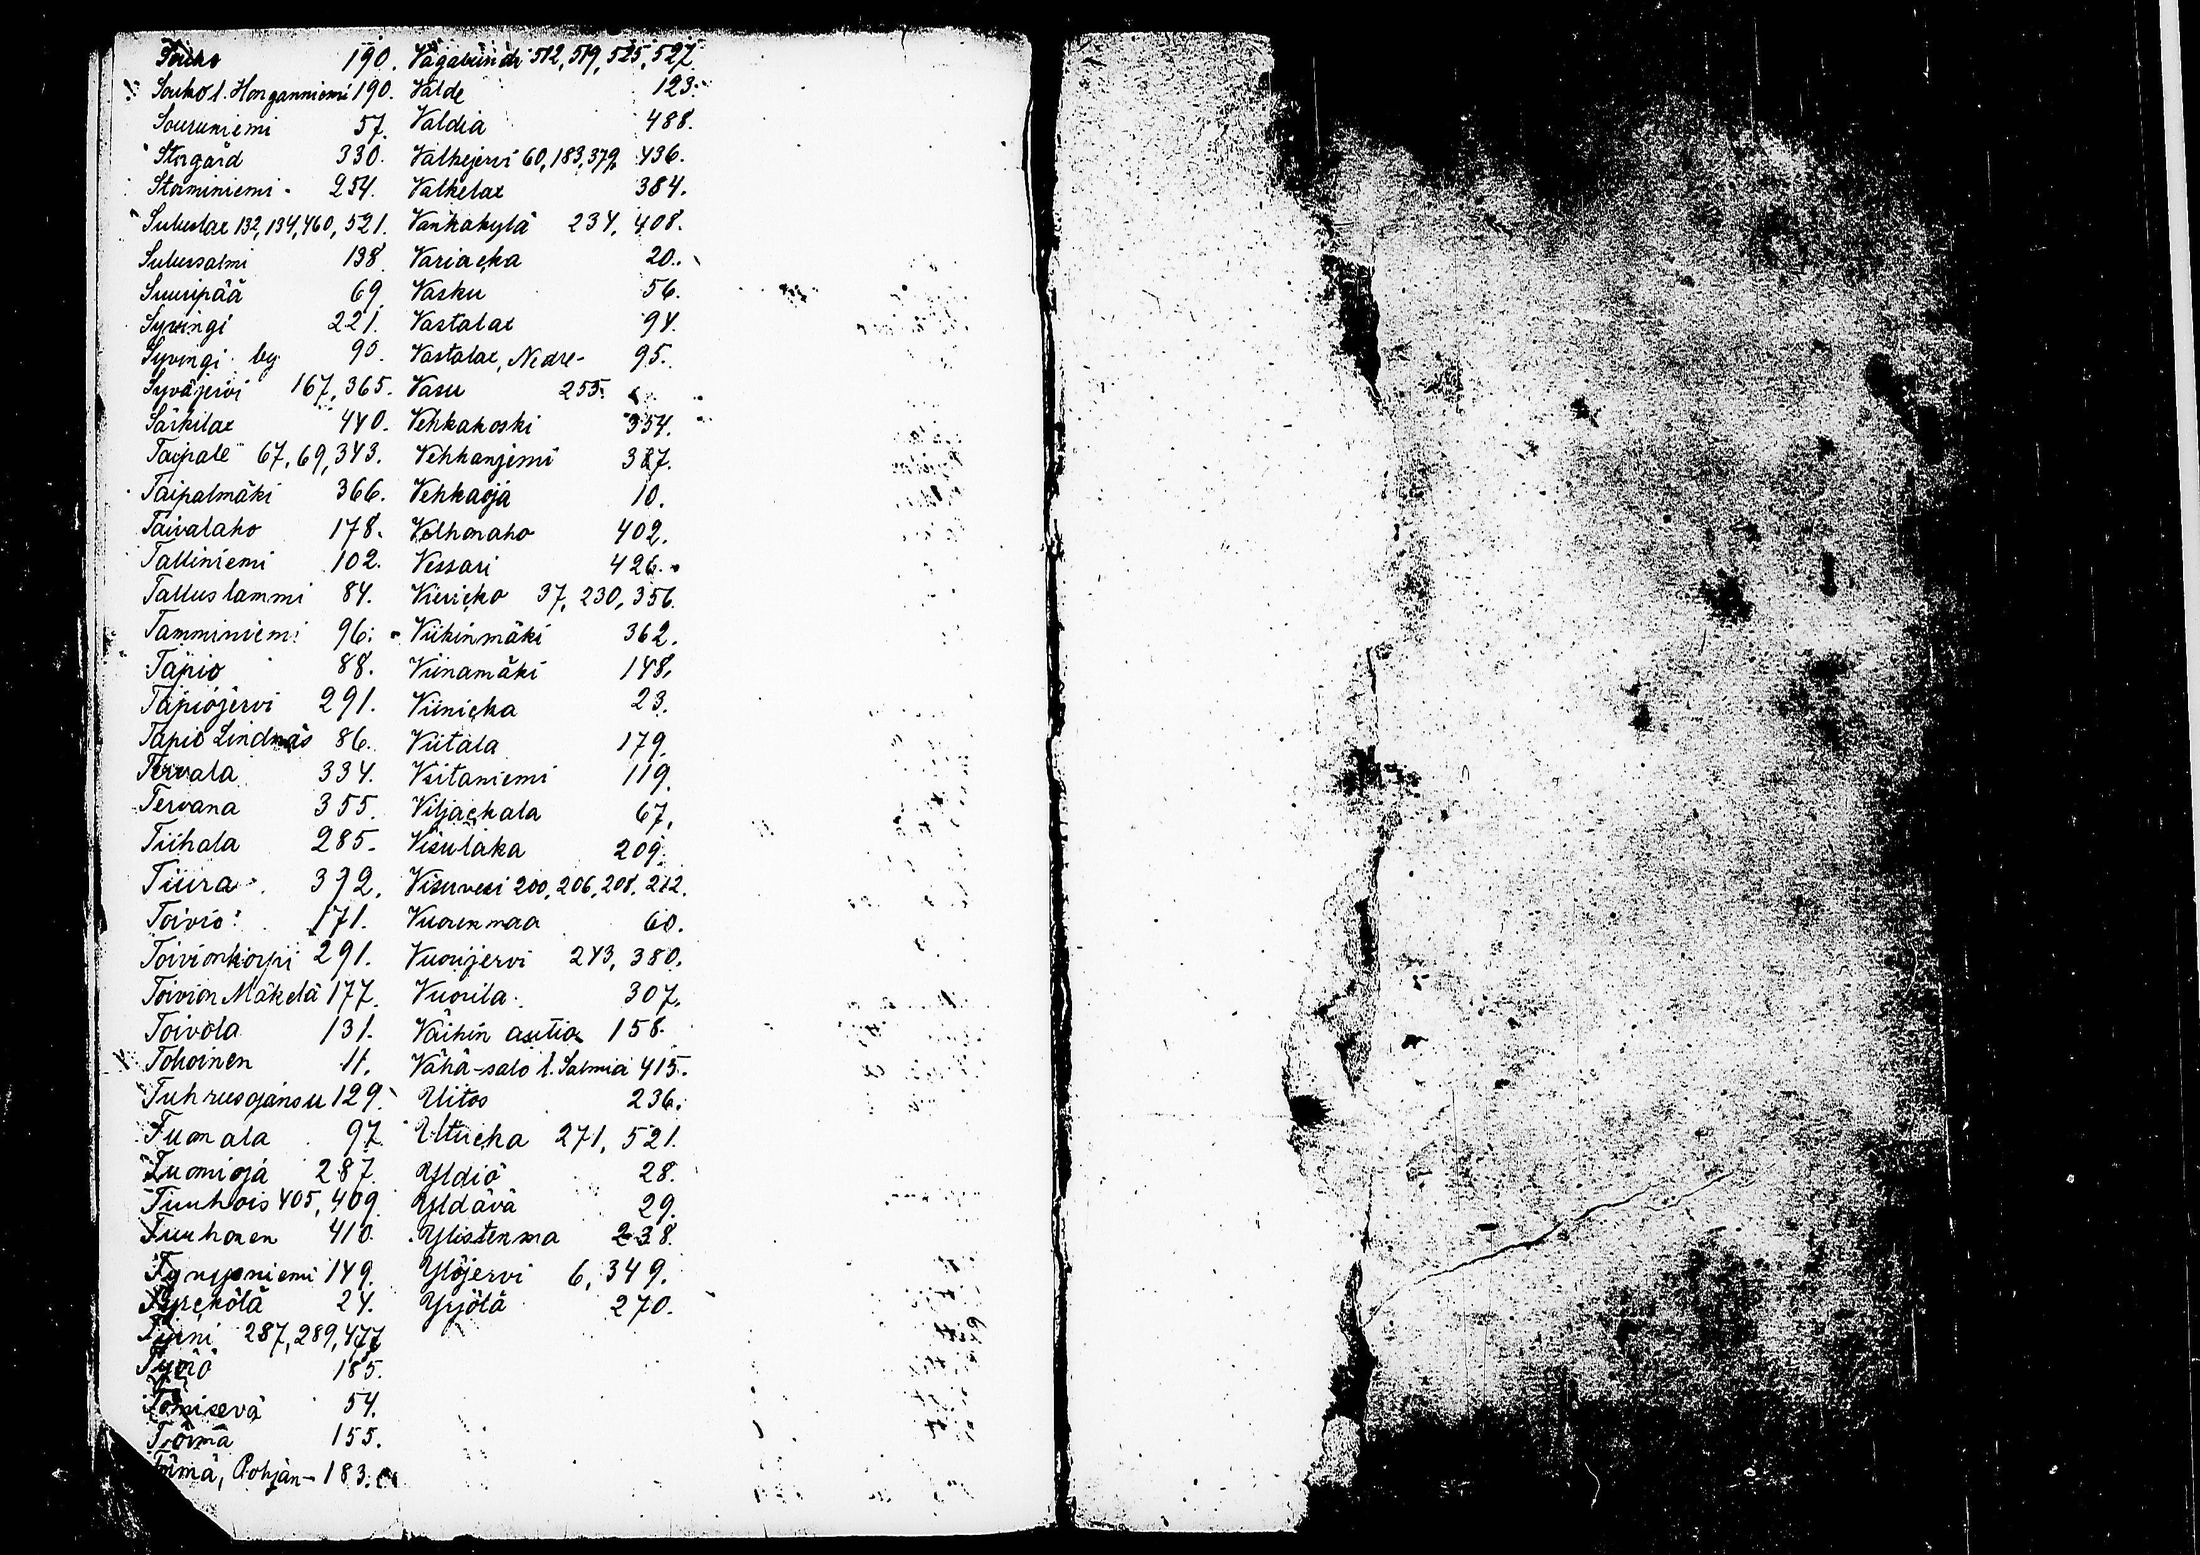 Souko 190.
Souko l. Honganniemi 190.
Souruniemi 57.
Storgård 330.
Storminiemi 254.
Suluslax 132, 134, 460, 521.
Sulussalmi 138
Suuripää 69
Syvingi 221.
Syvingi by 90.
Syväjervi 167, 365.
Särkilax 440.
Taipale 67, 69, 343.
Taipalmäki 366.
Taivalaho 178.
Talliniemi 102.
Talluslammi 84.
Tamminiemi 96.
Tapio 88.
Tapiojervi 291.
Tapio Lindnäs 86.
Tervala 334.
Tervana 355.
Tiihala 285.
Tiura 392.
Toivio 171.
Toivionkorpi 291.
Toivion Mäkelä 177.
Toivola 131.
Tohoinen 11.
Tuhrusojansu 129.
Tuomala 97.
Tuomioja 287.
Tuuhois 405, 409.
Tuuhonen 410.
149.
24.
Tyrni 287, 289, 477
185.
Tömisevä 54.
Törmä 155.
Törmä, Pohjan- 183.
Vagabunder 512, 519, 525, 527.
Valde 123.
Valdia 488.
Valkejervi 60, 183, 379, 436.
Valkelax 384.
Vankakylä 234, 408.
Variacka 20.
Vasku 56.
Vastalax 94.
Vastalax, Nedre- 95.
Vasu 255.
Vehkakoski 354.
Vehkanjemi 387.
Vehkaoja 10.
Velhonaho 402.
Vessari 426.
Viericko 37, 230, 356.
Viikinmäki 362.
Viinamäki 148.
Viinicka 23.
Viitala 179.
Viitaniemi 119.
Viljackala 67.
Visulaka 209.
Visuvesi 200, 206, 208, 212.
Vuorenmaa 60.
Vuorijervi 243, 380.
Vuorila 307.
Väihin autio 158.
Vähä-salo l. Salmia 415.
Uitos 236.
Uturcka 271, 521.
Yldiö 28.
Yldävä 29.
Ylistenma 238.
Ylöjervi 6, 349.
Yrjölä 270.